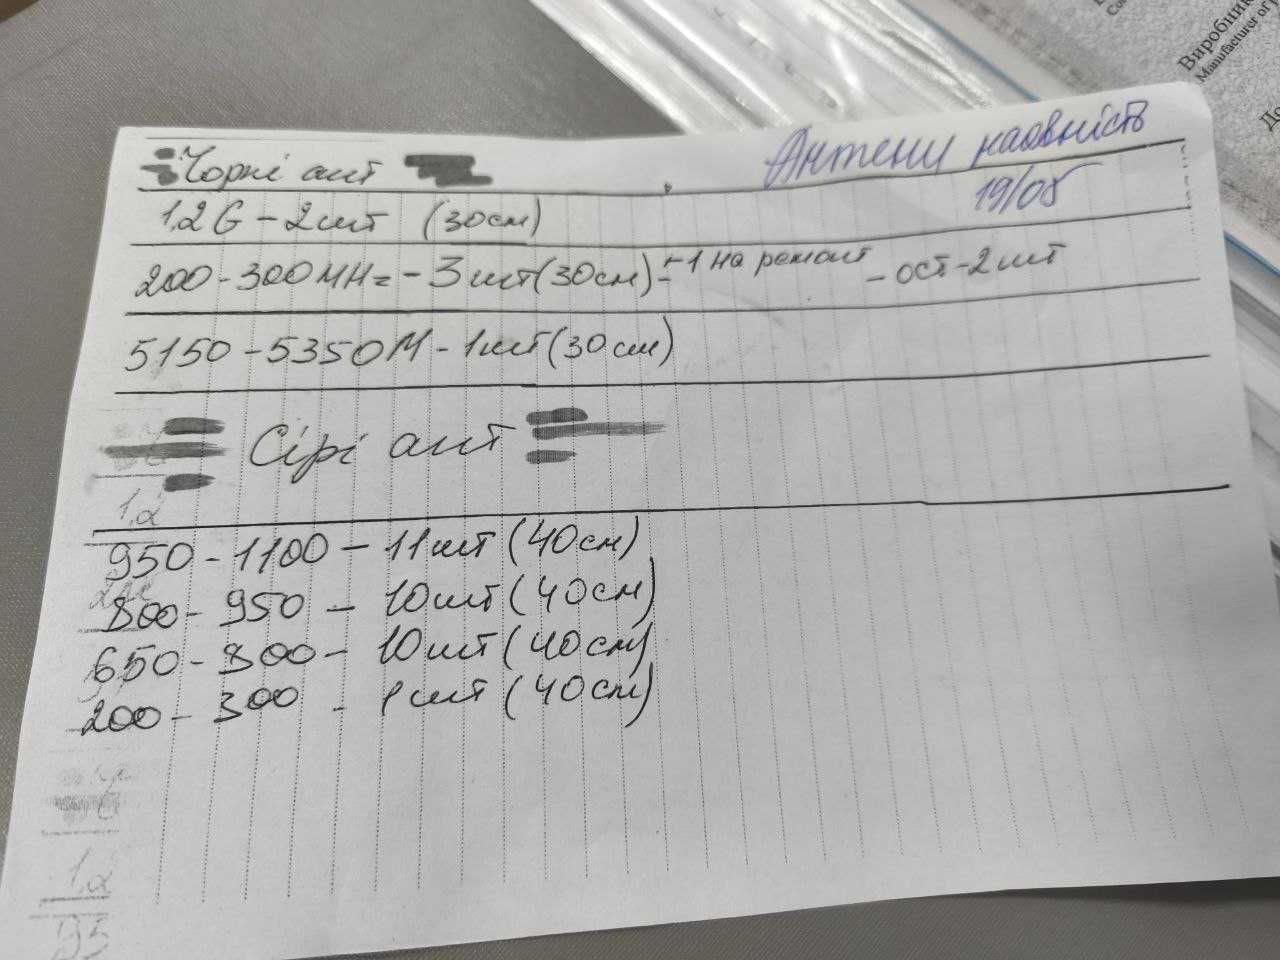 Антени наявність
19/05
Чорні ант
1,2 G - 2 шт (30см)
200 - 300 MHz - 3 шт (30см) - -1 на ремонт - ост - 2 шт
5150 - 5350 М - 1 шт (30см)
Сірі ант
950 - 1100 - 11 шт (40см)
800 - 950 - 10 шт (40см)
650 - 800 - 10 шт (40см)
200 - 300 - 1 шт (40см)
1,2
1,2
95
Виробник
Manufacturer of